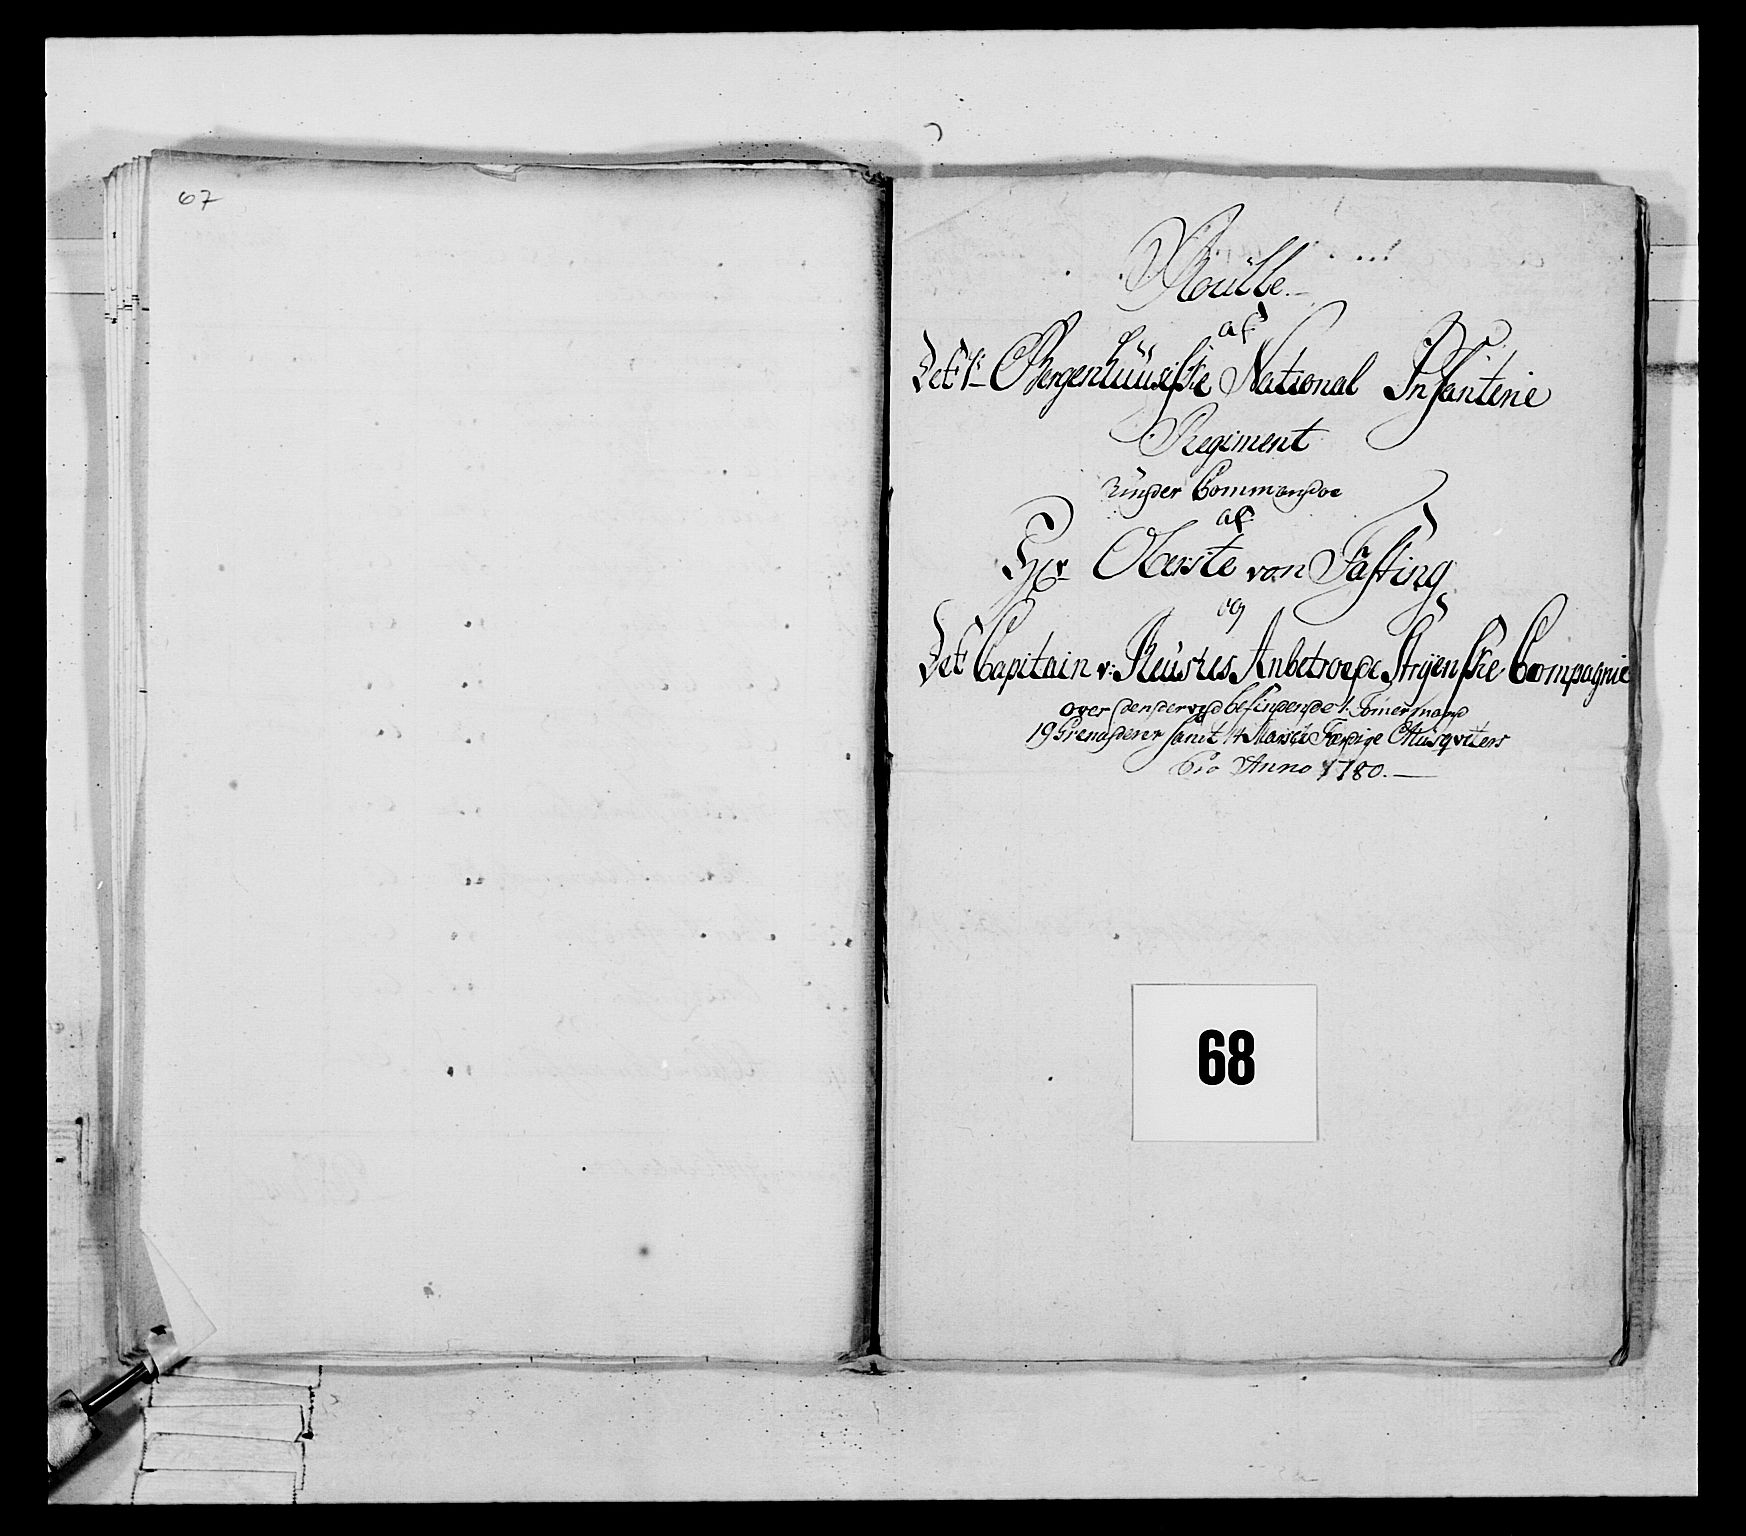 67
Roulle.
af
Det 1te Bergenhuusiske National Infanterie
Regiment
under Commandoe
af
Hr Oberste von Fasting
og
Det Capitain v: Reusses Anbetroede Stryenske Compagnie
over den derved befindende 1. Tømermand
19 Grenaderer samt Marsch Færdige Musqveters
Pro Anno 1780.
68